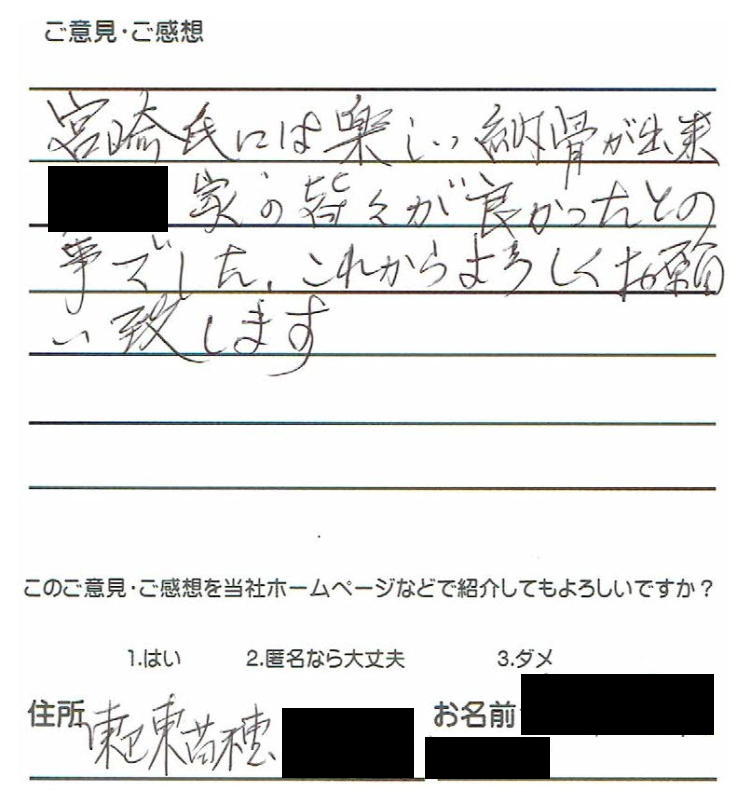 ご意見・ご感想
宮崎氏には楽しい納骨が出来
家の皆々が良かったとの
事でした、これからよろしくお願
い致します
このご意見・ご感想を当社ホームページなどで紹介してもよろしいですか？
1.はい 2.匿名なら大丈夫 3.ダメ
住所 東区東苗穂 お名前